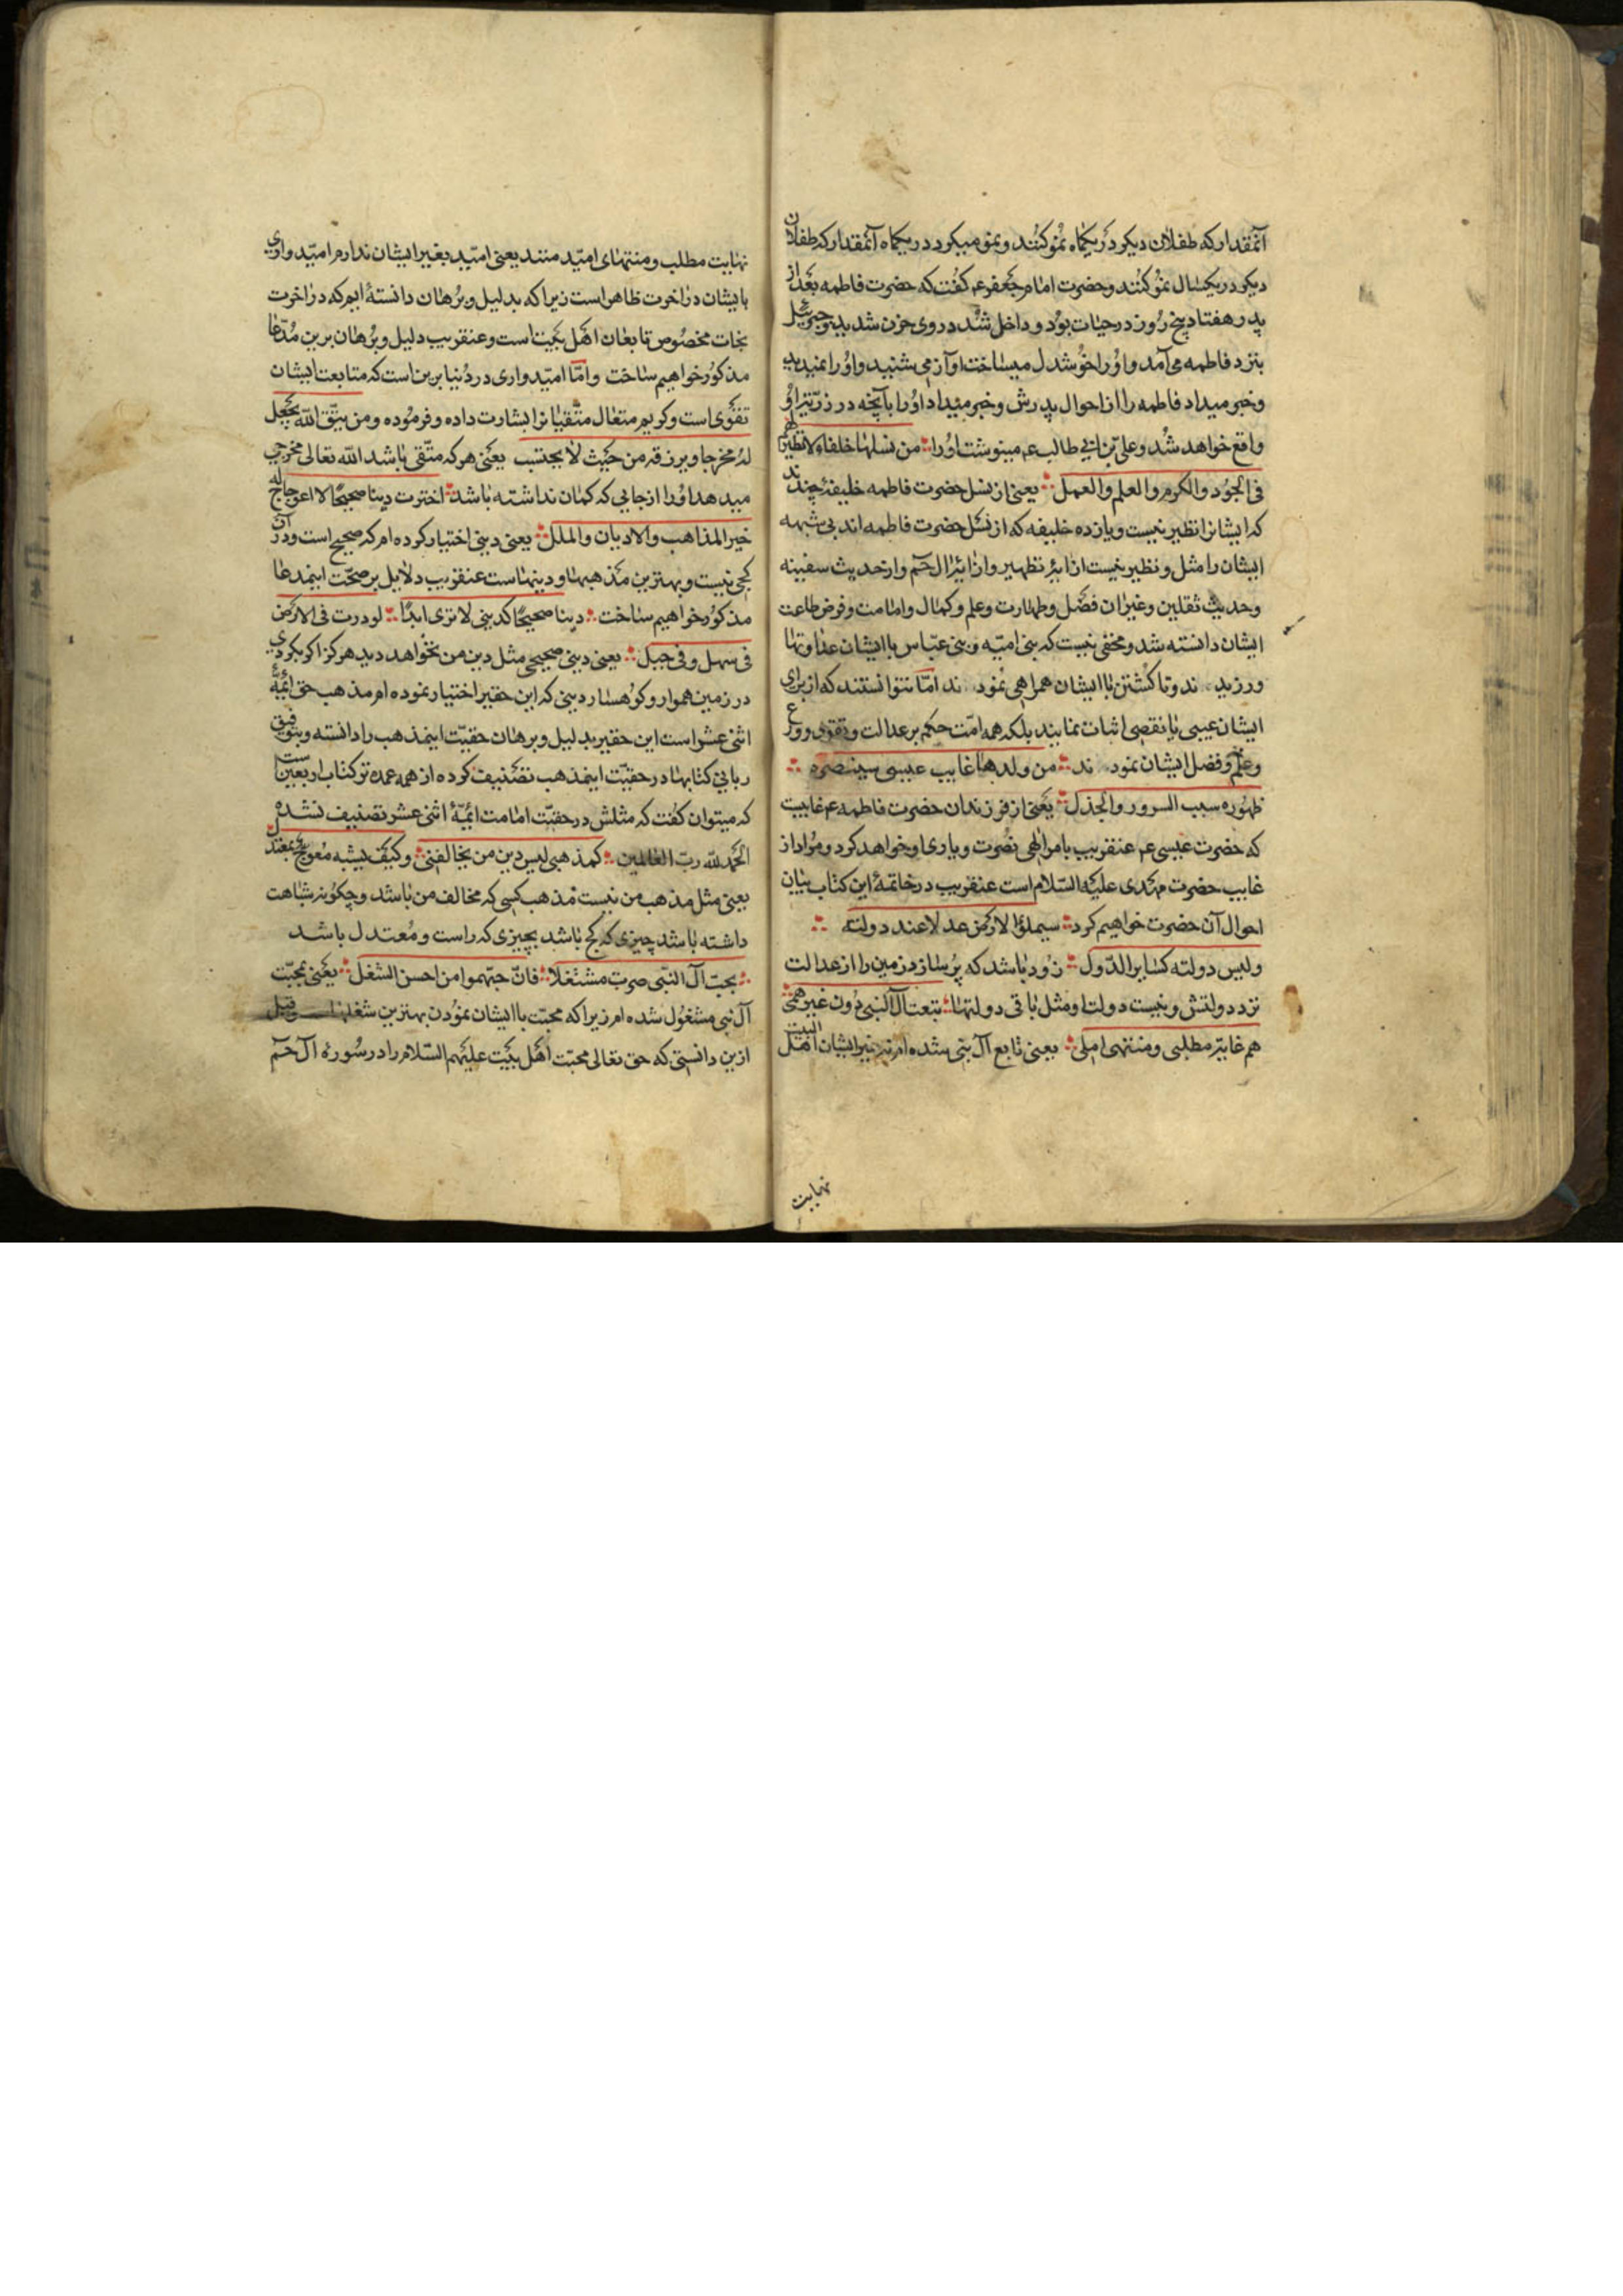 آنمقدار که طفلان دیکر در یکماه نمو کنند و نمو میکرد در یکماه آنمقدار که طفلان
دیکر در یکسال نمو کنند و حضرت امام جعفر ع م کفت که حضرت فاطمه بعد از
پدر هفتاد پنج روز در حیات بود و داخل شد در وی حزن شدید و جبرئیل
بنزد فاطمه می آمد و او را خوشدل میساخت و آواز می شنید و او را نمیدید
و خبر میداد فاطمه را از احوال پدرش و خبر میداد او را بآنچه در ذریت او
واقع خواهد شد و علی بن ابی طالب ع م مینوشت او را من نسلها خلفاء لا نظیر لهم
فی الجود والکرم والعلم والعمل یعنی از نسل حضرت فاطمه خلیفه چندند
که ایشانرا نظیر نیست و یازده خلیفه که از نسل حضرت فاطمه اند بی شبهه
ایشان را مثل و نظیر نیست از آیه تطهیر و از آیة ال حم و از حدیث سفینه
و حدیث ثقلین و غیر آن فضل و طهارت و علم و کمال و امامت و فرض طاعت
ایشان دانسته شد و مخفی نیست که بنی امیه و بنی عباس با ایشان عداوتها
ورزید ند و تا کشتن با ایشان همراهی نمود ند اما نتوانستند که از برای
ایشان عیبی یا نقصی اثبات نمایند بلکه همه امت حکم بر عدالت و تقوی و ورع
و علم و فضل ایشان نمود ند من ولدها غایب عیسی سینصره
ظهوره سبب السرور والجذل یعنی از فرزندان حضرت فاطمه ع م غایبیت
که حضرت عیسی ع م عنقریب بامر الهی نصرت و یاری او خواهد کرد و مراد از
غایب حضرت مهدی علیه السلام است عنقریب در خاتمهٔ این کتاب بیان
احوال آن حضرت خواهیم کرد سیملؤ الارض عدلا عند دولته
ولیس دولته کسایر الدول زود باشد که پر سازد زمین را از عدالت
نزد دولتش و نیست دولت او مثل باقی دولتها تبعت آل النبی دون غیرهم
هم غایة مطلبی ومنتهی املی یعنی تابع آل نبی شده ام نه غیر ایشان اهل البیت
نهایت
نهایت مطلب و منتهای امید منند یعنی امید بغیر ایشان ندارم امیدواری
بایشان در اخرت ظاهر است زیرا که بدلیل و برهان دانستهٔ ایم که در اخرت
نجات مخصوص تابعان اهل بیت است و عنقریب دلیل و برهان برین مدعا
مذکور خواهیم ساخت و اما امیدواری در دنیا برین است که متابعت ایشان
تقوی است و کریم متعال متقیانرا بشارت داده و فرموده ومن یتق الله یجعل
له مخرجا ویرزقه من حیث لا یحتسب یعنی هر که متقی باشد الله تعالی مخرجی
میدهد او را از جایی که کمان نداشته باشد اخترت دینا صحیحا لا اعوجاج له
خیر المذاهب والادیان والملل یعنی دینی اختیار کرده ام که صحیح است و در آن
کجی نیست و بهترین مذهبها و دینهاست عنقریب دلایل بر صحت اینمدعا
مذکور خواهیم ساخت دینا صحیحا کدینی لا تری ابدا لو درت فی الارض
فی سهل وفی جبل یعنی دینی صحیحی مثل دین من نخواهد دید هرکز اکر بکردی
در زمین هموار و کوهسار دینی که این حقیر اختیار نموده ام مذهب حق ائمهٔ
اثنی عشر است این حقیر بدلیل و برهان حقیت اینمذهب را دانسته و بتوفیق
ربانی کتابها در حقیت اینمذهب تصنیف کرده از همه عمده تر کتاب اربعین است
که میتوان کفت که مثلش در حقیت امامت ائمهٔ اثنی عشر تصنیف نشده
الحمد لله رب العالمین کمذهبی لیس دین من یخالفنی وکیف یشبه معوج بمعتدل
یعنی مثل مذهب من نیست مذهب کسی که مخالف من باشد و چکونه شباهت
داشته باشد چیزی که کج باشد بچیزی که راست و معتدل باشد
بحب آل النبی صرت مشتغلا فان حبهموا من احسن الشغل یعنی بمحبت
آل نبی مشغول شده ام زیرا که محبت با ایشان نمودن بهترین شغلهاست و قبل
ازین دانستی که حق تعالی محبت اهل بیت علیهم السلام را در سوره ال حم